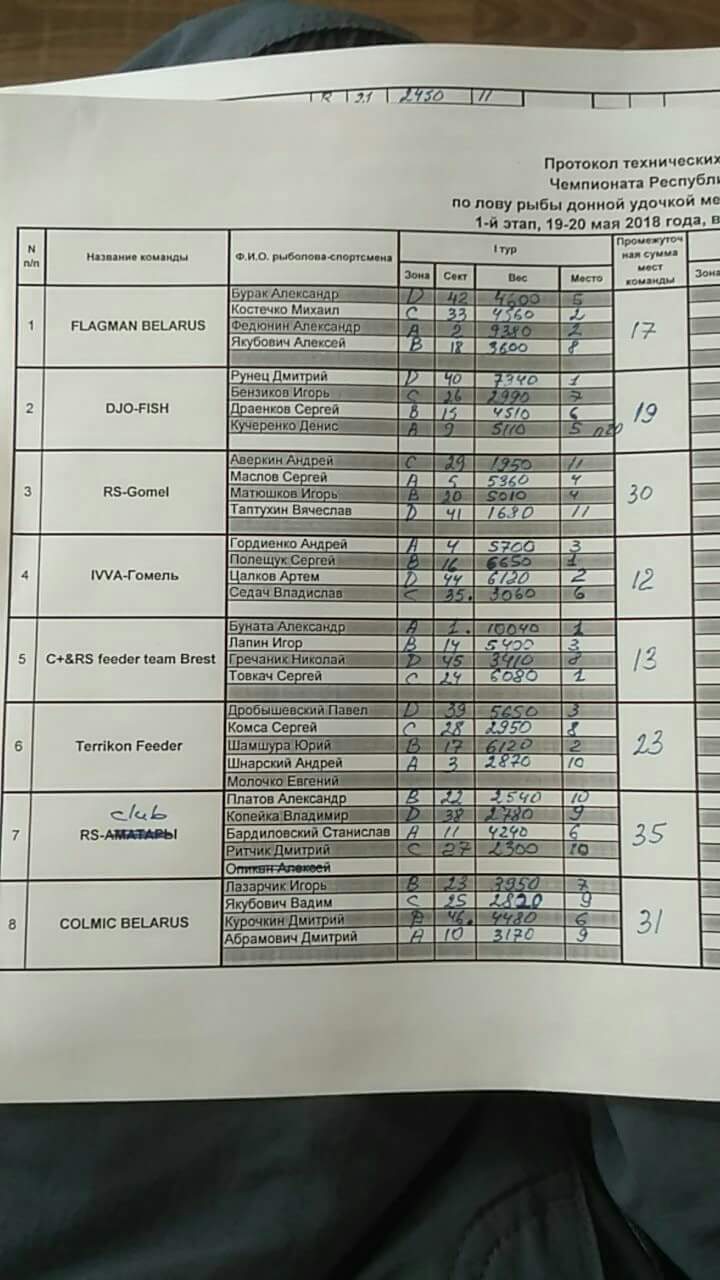 R 21 2450 11
Протокол технических
Чемпионата Республи
по лову рыбы донной удочкой ме
1-й этап, 19-20 мая 2018 года, в
N п/п Название команды Ф.И.О. рыболова-спортсмена I тур Промежуточная сумма мест команды
Зона Сект Вес Место Зона
1 FLAGMAN BELARUS 17
Бурак Александр D 42 4600 5
Костечко Михаил C 33 4560 2
Федюнин Александр A 2 9380 2
Якубович Алексей B 18 3600 8
2 DJO-FISH 19
Рунец Дмитрий D 40 7340 1
Бензиков Игорь C 26 2990 7
Драенков Сергей B 15 4510 6
Кучеренко Денис A 9 5110 5
3 RS-Gomel 30
Аверкин Андрей C 29 1950 11
Маслов Сергей A 5 5360 4
Матюшков Игорь B 20 5010 4
Таптухин Вячеслав D 41 1680 11
4 IVVA-Гомель 12
Гордиенко Андрей A 4 5700 3
Полещук Сергей B 16 6650 1
Цалков Артем D 44 6120 2
Седач Владислав C 35. 3060 6
5 C+&RS feeder team Brest 13
Буната Александр A 1. 10040 1
Лапин Игор B 14 5400 3
Гречаник Николай D 45 3410 8
Товкач Сергей C 24 6080 1
6 Terrikon Feeder 23
Дробышевский Павел D 39 5650 3
Комса Сергей C 28 2950 8
Шамшура Юрий B 17 6120 2
Шнарский Андрей A 3 2870 10
Молочко Евгений
club
7 RS-АМАТАРЫ 35
Платов Александр B 22 2540 10
Копейка Владимир D 38 2780 9
Бардиловский Станислав A 11 4240 6
Ритчик Дмитрий C 27 2300 10
8 COLMIC BELARUS 31
Лазарчик Игорь B 23 3950 7
Якубович Вадим C 25 2820 9
Курочкин Дмитрий D 46. 4480 6
Абрамович Дмитрий A 10 3170 9